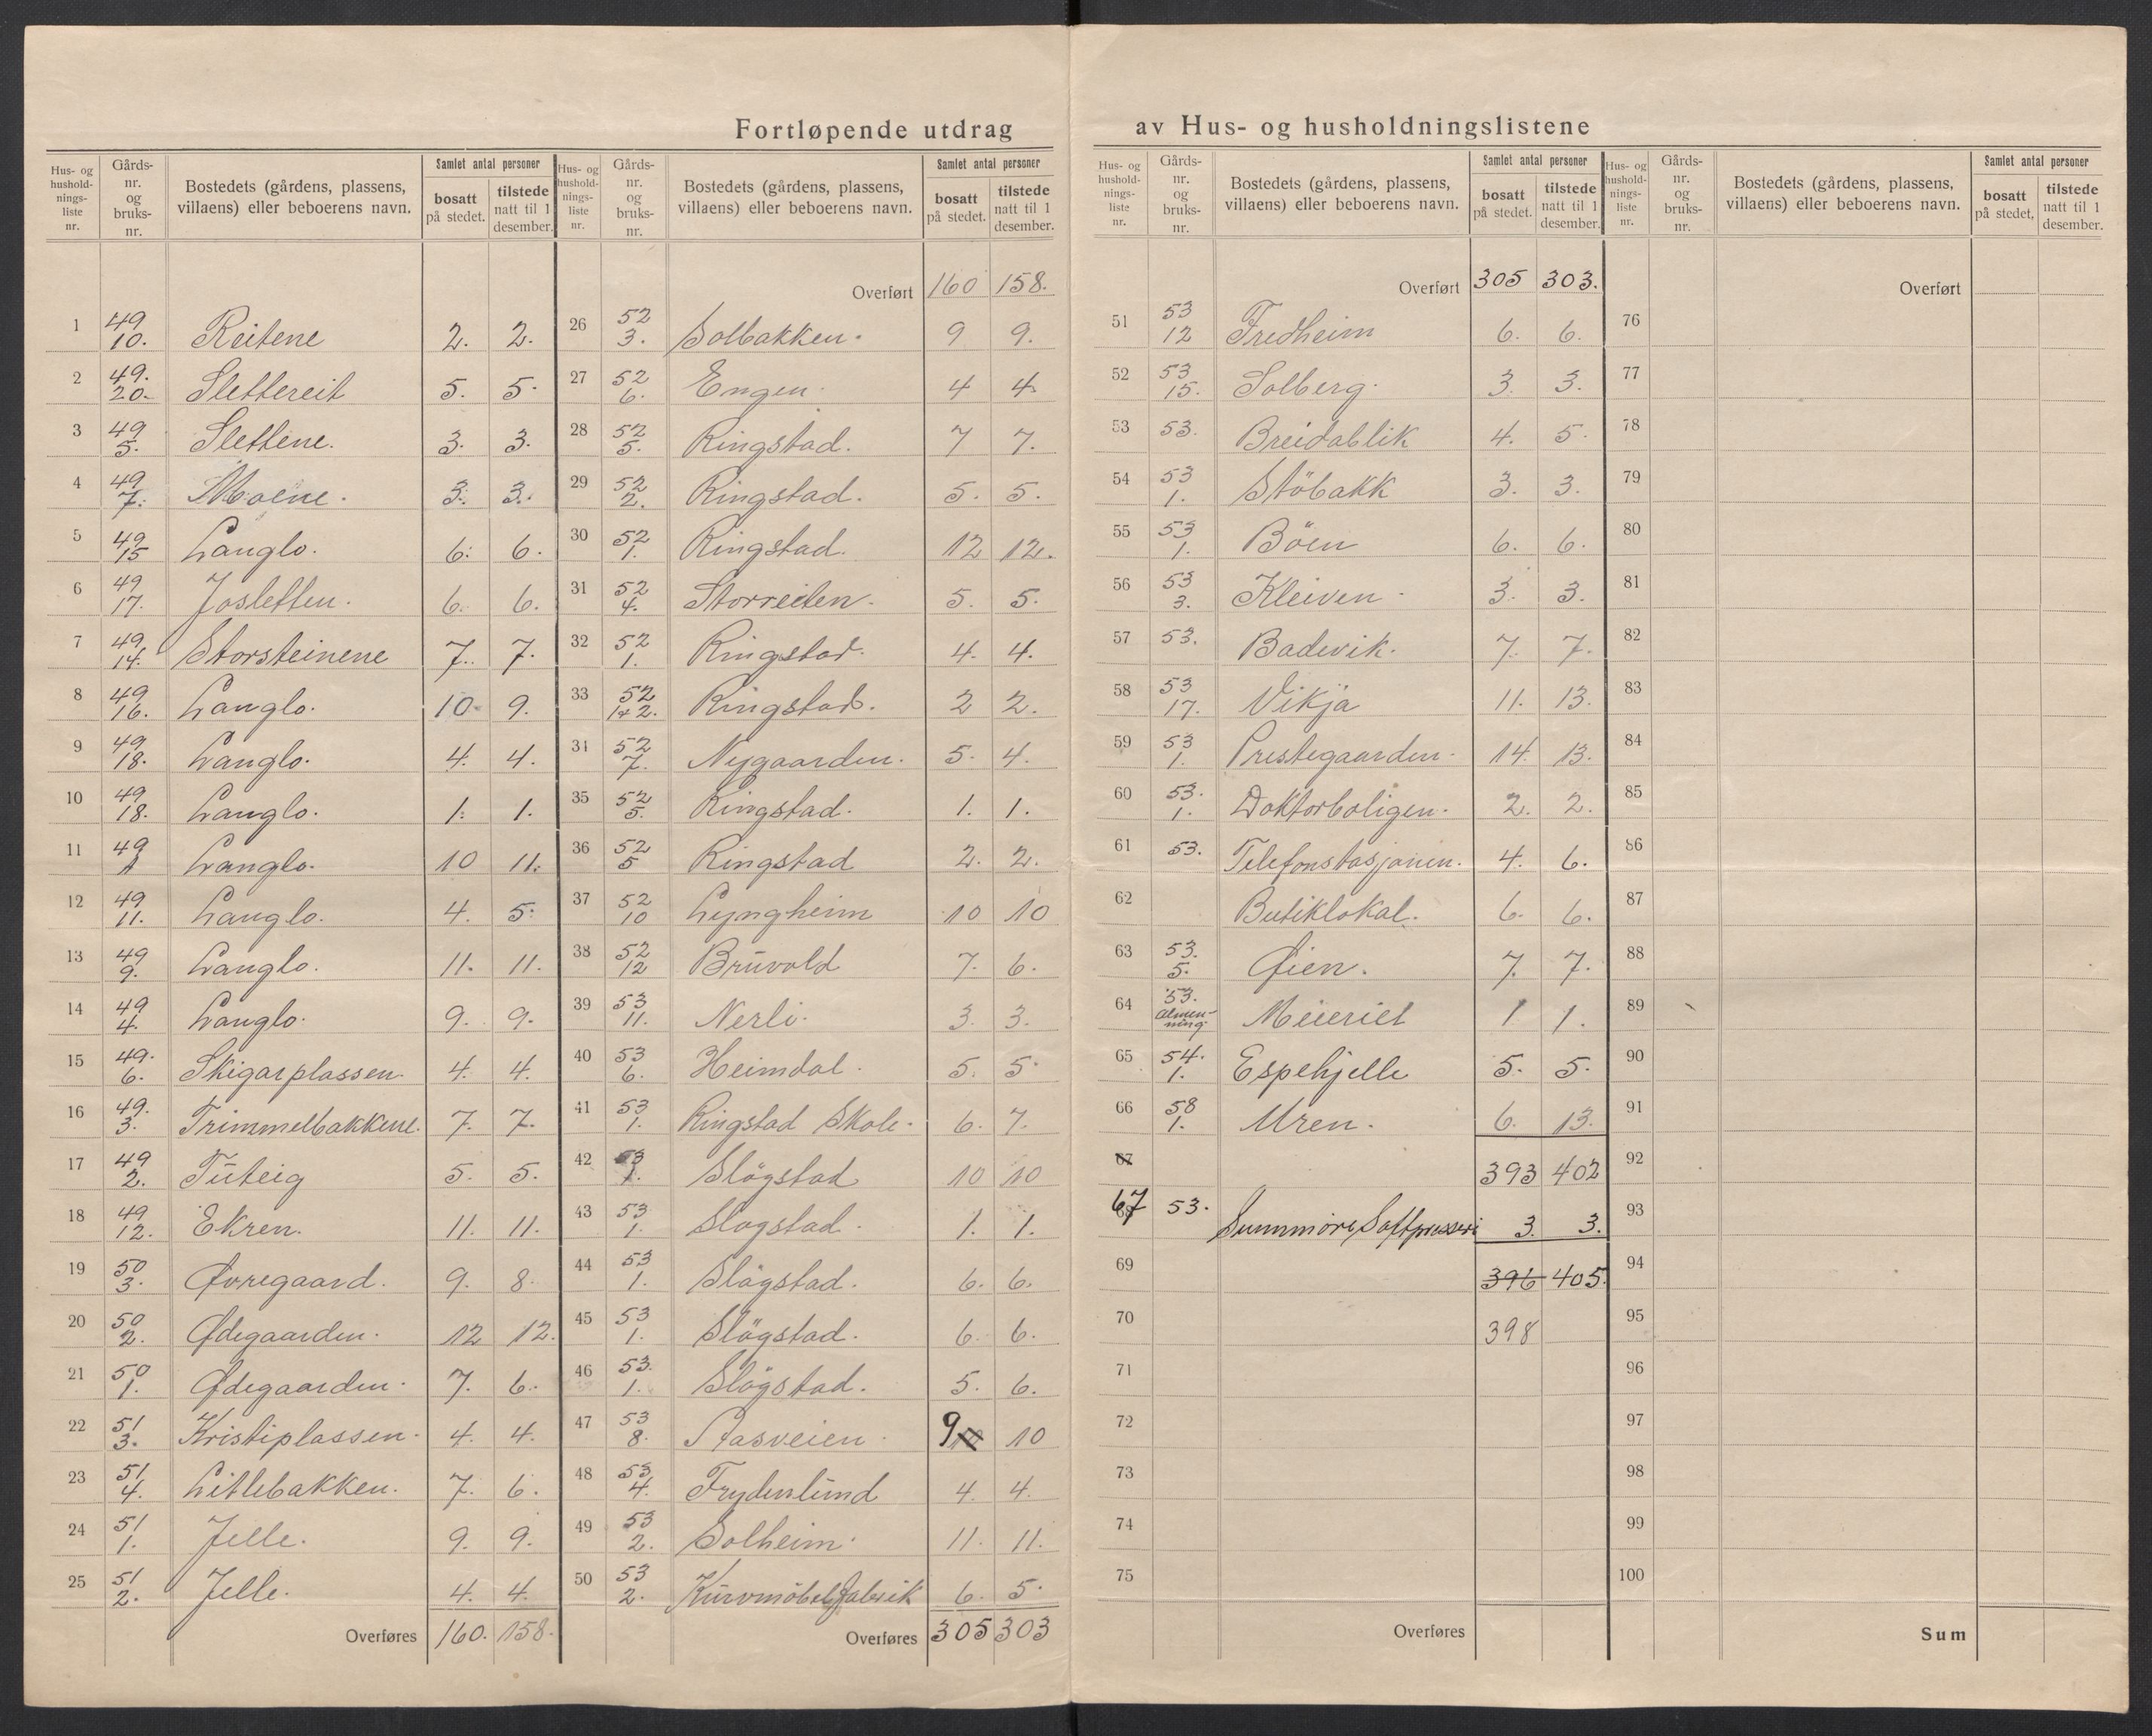 Fortløpende utdrag av Hus- og husholdningslistene
Hus- og hushold-nings-liste nr. Gårds-nr. og bruks-nr. Bostedets (gårdens, plassens, villaens) eller beboerens navn. Samlet antal personer bosatt på stedet. tilstede natt til 1 desember.
1 49 10. Reitene 2. 2.
2 49. 20. Slettereit 5. 5.
3 49 5. Slettene. 3. 3.
4 49 7. Moene. 3. 3.
5 49 15 Langlo. 6. 6.
6 49 17. Josletten. 6. 6.
7 49 14. Storsteinene 7. 7.
8 49 16. Langlo. 10. 9.
9 49 18. Langlo. 4. 4.
10 49 18. Langlo. 1. 1.
11 49 1 Langlo. 10 11.
12 49 11. Langlo. 4. 5.
13 49 9. Langlo. 11. 11.
14 49 4. Langlo. 9. 9.
15 49. 6. Skigarplassen 4. 4.
16 49. 3. Trimmelbakkene. 7. 7.
17 49 2. Tuteig 5. 5.
18 49 12. Ekren. 11. 11.
19 50 3. Øvregaard. 9. 8.
20 50 2. Ødegaarden. 12 12.
21 50 1. Ødegaarden. 7. 6.
22 51 3. Kristiplassen. 4. 4.
23 51 4. Litlebakken. 7. 6.
24 51 1. Jelle. 9. 9.
25 51 2. Jelle. 4. 4.
Overføres 160. 158.
Hus- og hushold-nings-liste nr. Gårds-nr. og bruks-nr. Bostedets (gårdens, plassens, villaens) eller beboerens navn. Samlet antal personer bosatt på stedet. tilstede natt til 1 desember.
Overført 160 158.
26 52 3. Solbakken. 9 9.
27 52 6. Engen. 4 4.
28 52 5. Ringstad. 7 7.
29 52 2. Ringstad. 5. 5.
30 52 1. Ringstad. 12 12.
31 52 4. Storreiten. 5. 5.
32 52 1. Ringstad. 4. 4.
33 52 1+2. Ringstad. 2 2.
34 52 7. Nygaarden. 5. 4.
35 52 5. Ringstad. 1. 1.
36 52 5 Ringstad 2. 2.
37 52 10 Lyngheim 10 10
38 52 12 Bruvold 7. 6.
39 53 11. Nerli. 3. 3.
40 53 6. Heimdal. 5. 5.
41 53 1. Ringstad Skole. 6. 7.
42 53 1. Slögstad 10 10
43 53 1. Slogstad. 1. 1.
44 53 1. Slögstad. 6. 6.
45 53 1. Slögstad. 6. 6.
46 53. 1. Slögstad. 5. 6.
47 53 8. Aasveien 9 10 10
48 53 4. Frydenlund 4. 4.
49 53 2. Solheim. 11. 11.
50 53 2. Kurvmöbelfabrik 6. 5.
Overføres 305 303
Hus- og hushold-nings-liste nr. Gårds-nr. og bruks-nr. Bostedets (gårdens, plassens, villaens) eller beboerens navn. Samlet antal personer bosatt på stedet. tilstede natt til 1 desember.
Overført 305 303.
51 53 12 Fredheim 6. 6.
52 53 15. Solberg. 3. 3.
53 53. Breidablik 4. 5.
54 53 1. Stöbakk 3. 3.
55 53 1. Böen 6. 6.
56 53 3. Kleiven. 3. 3.
57 53. Badevik. 7. 7.
58 53 17. Vikja 11. 13.
59 53 1. Prestegaarden. 14. 13.
60 53. 1. Doktorboligen. 2. 2.
61 53. Telefonstasjonen. 4. 6.
62 Butiklokal. 6. 6.
63 53. 5. Øien. 7. 7.
64 53. almen-ning. Meieriet 1 1.
65 54. 1. Espehjelle 5. 5.
66 58 1. Uren. 6. 13.
67 393 402
67 53. Sunnmøre Saftpresseri 3. 3.
69 396 405.
70 398
71
72
73
74
75
Overføres
Hus- og hushold-nings-liste nr. Gårds-nr. og bruks-nr. Bostedets (gårdens, plassens, villaens) eller beboerens navn. Samlet antal personer bosatt på stedet, tilstede natt til 1 desember.
Overført
76
77
78
79
80
81
82
83
84
85
86
87
88
89
90
91
92
93
94
95
96
97
98
99
100
Sum